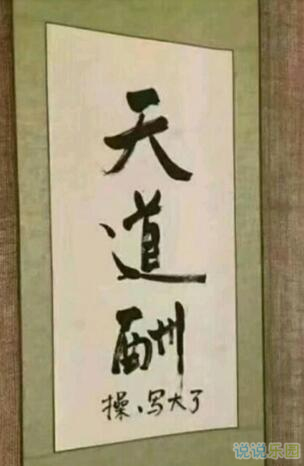 天
道
酬
操、写大了
说说乐园